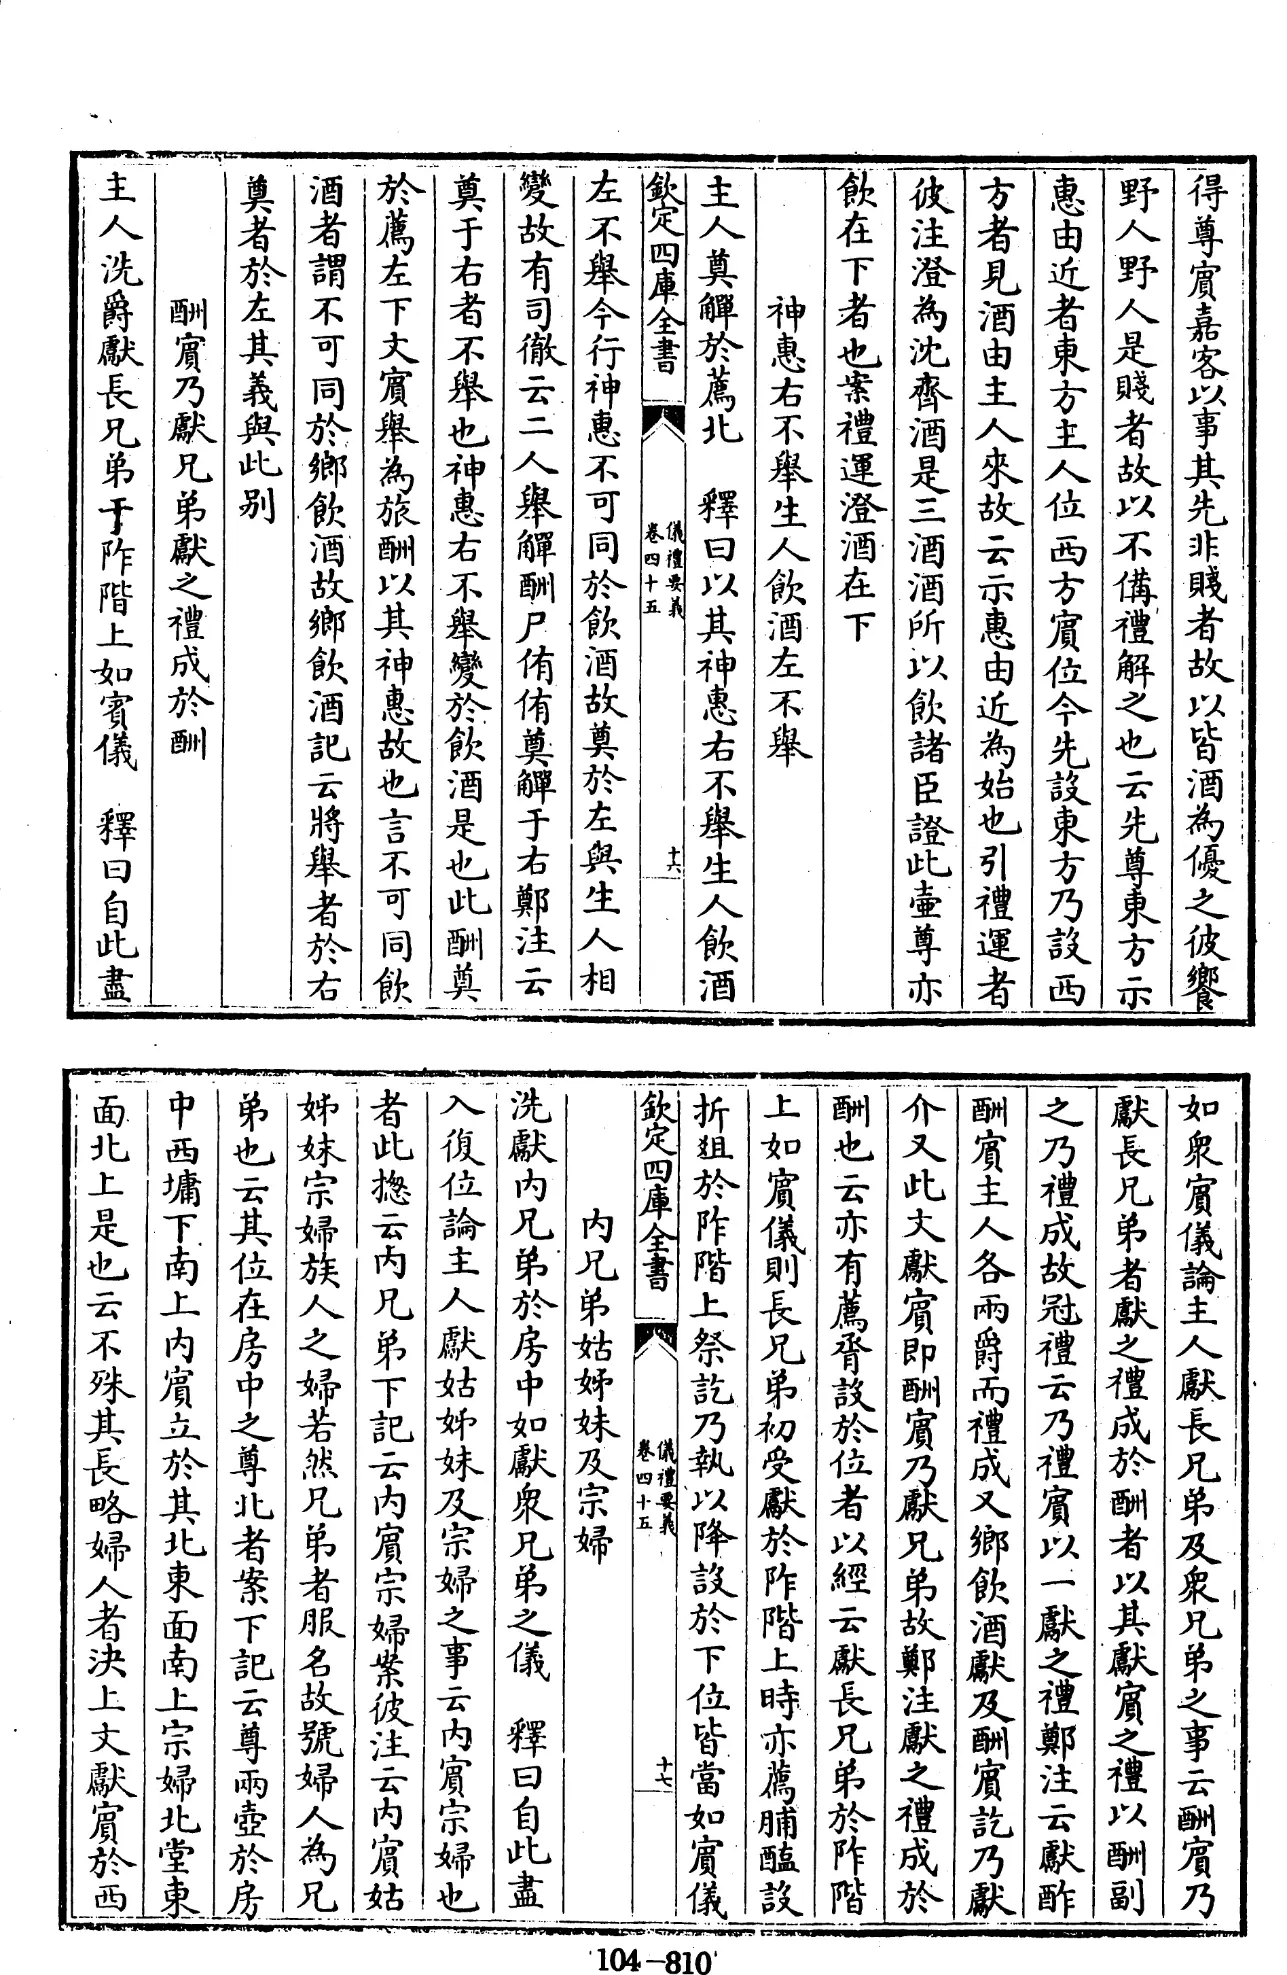 得尊賔嘉客以事其先非賤者故以皆酒為優之彼饗
野人野人是賤者故以不備禮解之也云先尊東方示
惠由近者東方主人位西方賔位今先設東方乃設西
方者見酒由主人來故云示惠由近為始也引禮運者
彼注澄為沈齊酒是三酒酒所以飲諸臣證此壷尊亦
飲在下者也案禮運澄酒在下
神惠右不舉生人飲酒左不舉
主人奠觶於薦北　釋曰以其神惠右不舉生人飲酒
欽定四庫全書
儀禮要義
卷四十五
十六
左不舉今行神惠不可同於飲酒故奠於左與生人相
變故有司徹云二人舉觶酬尸侑侑奠觶于右鄭注云
奠于右者不舉也神惠右不舉變於飲酒是也此酬奠
於薦左下文賔舉為旅酬以其神惠故也言不可同飲
酒者謂不可同於鄉飲酒故鄉飲酒記云將舉者於右
奠者於左其義與此别
酬賔乃獻兄弟獻之禮成於酬
主人洗爵獻長兄弟于阼階上如賔儀　釋曰自此盡
如衆賔儀論主人獻長兄弟及衆兄弟之事云酬賔乃
獻長兄弟者獻之禮成於酬者以其獻賔之禮以酬副
之乃禮成故冠禮云乃禮賔以一獻之禮鄭注云獻酢
酬賔主人各兩爵而禮成又鄉飲酒獻及酬賔訖乃獻
介又此文獻賔即酬賔乃獻兄弟故鄭注獻之禮成於
酬也云亦有薦脀設於位者以經云獻長兄弟於阼階
上如賔儀則長兄弟初受獻於阼階上時亦薦脯醢設
折俎於阼階上祭訖乃執以降設於下位皆當如賔儀
欽定四庫全書
儀禮要義
卷四十五
十七
内兄弟姑姊妹及宗婦
洗獻内兄弟於房中如獻衆兄弟之儀　釋曰自此盡
入復位論主人獻姑姊妹及宗婦之事云内賔宗婦也
者此揔云内兄弟下記云内賔宗婦案彼注云内賔姑
姊妹宗婦族人之婦若然兄弟者服名故號婦人為兄
弟也云其位在房中之尊北者案下記云尊兩壺於房
中西墉下南上内賔立於其北東面南上宗婦北堂東
面北上是也云不殊其長略婦人者決上文獻賔於西
104-810